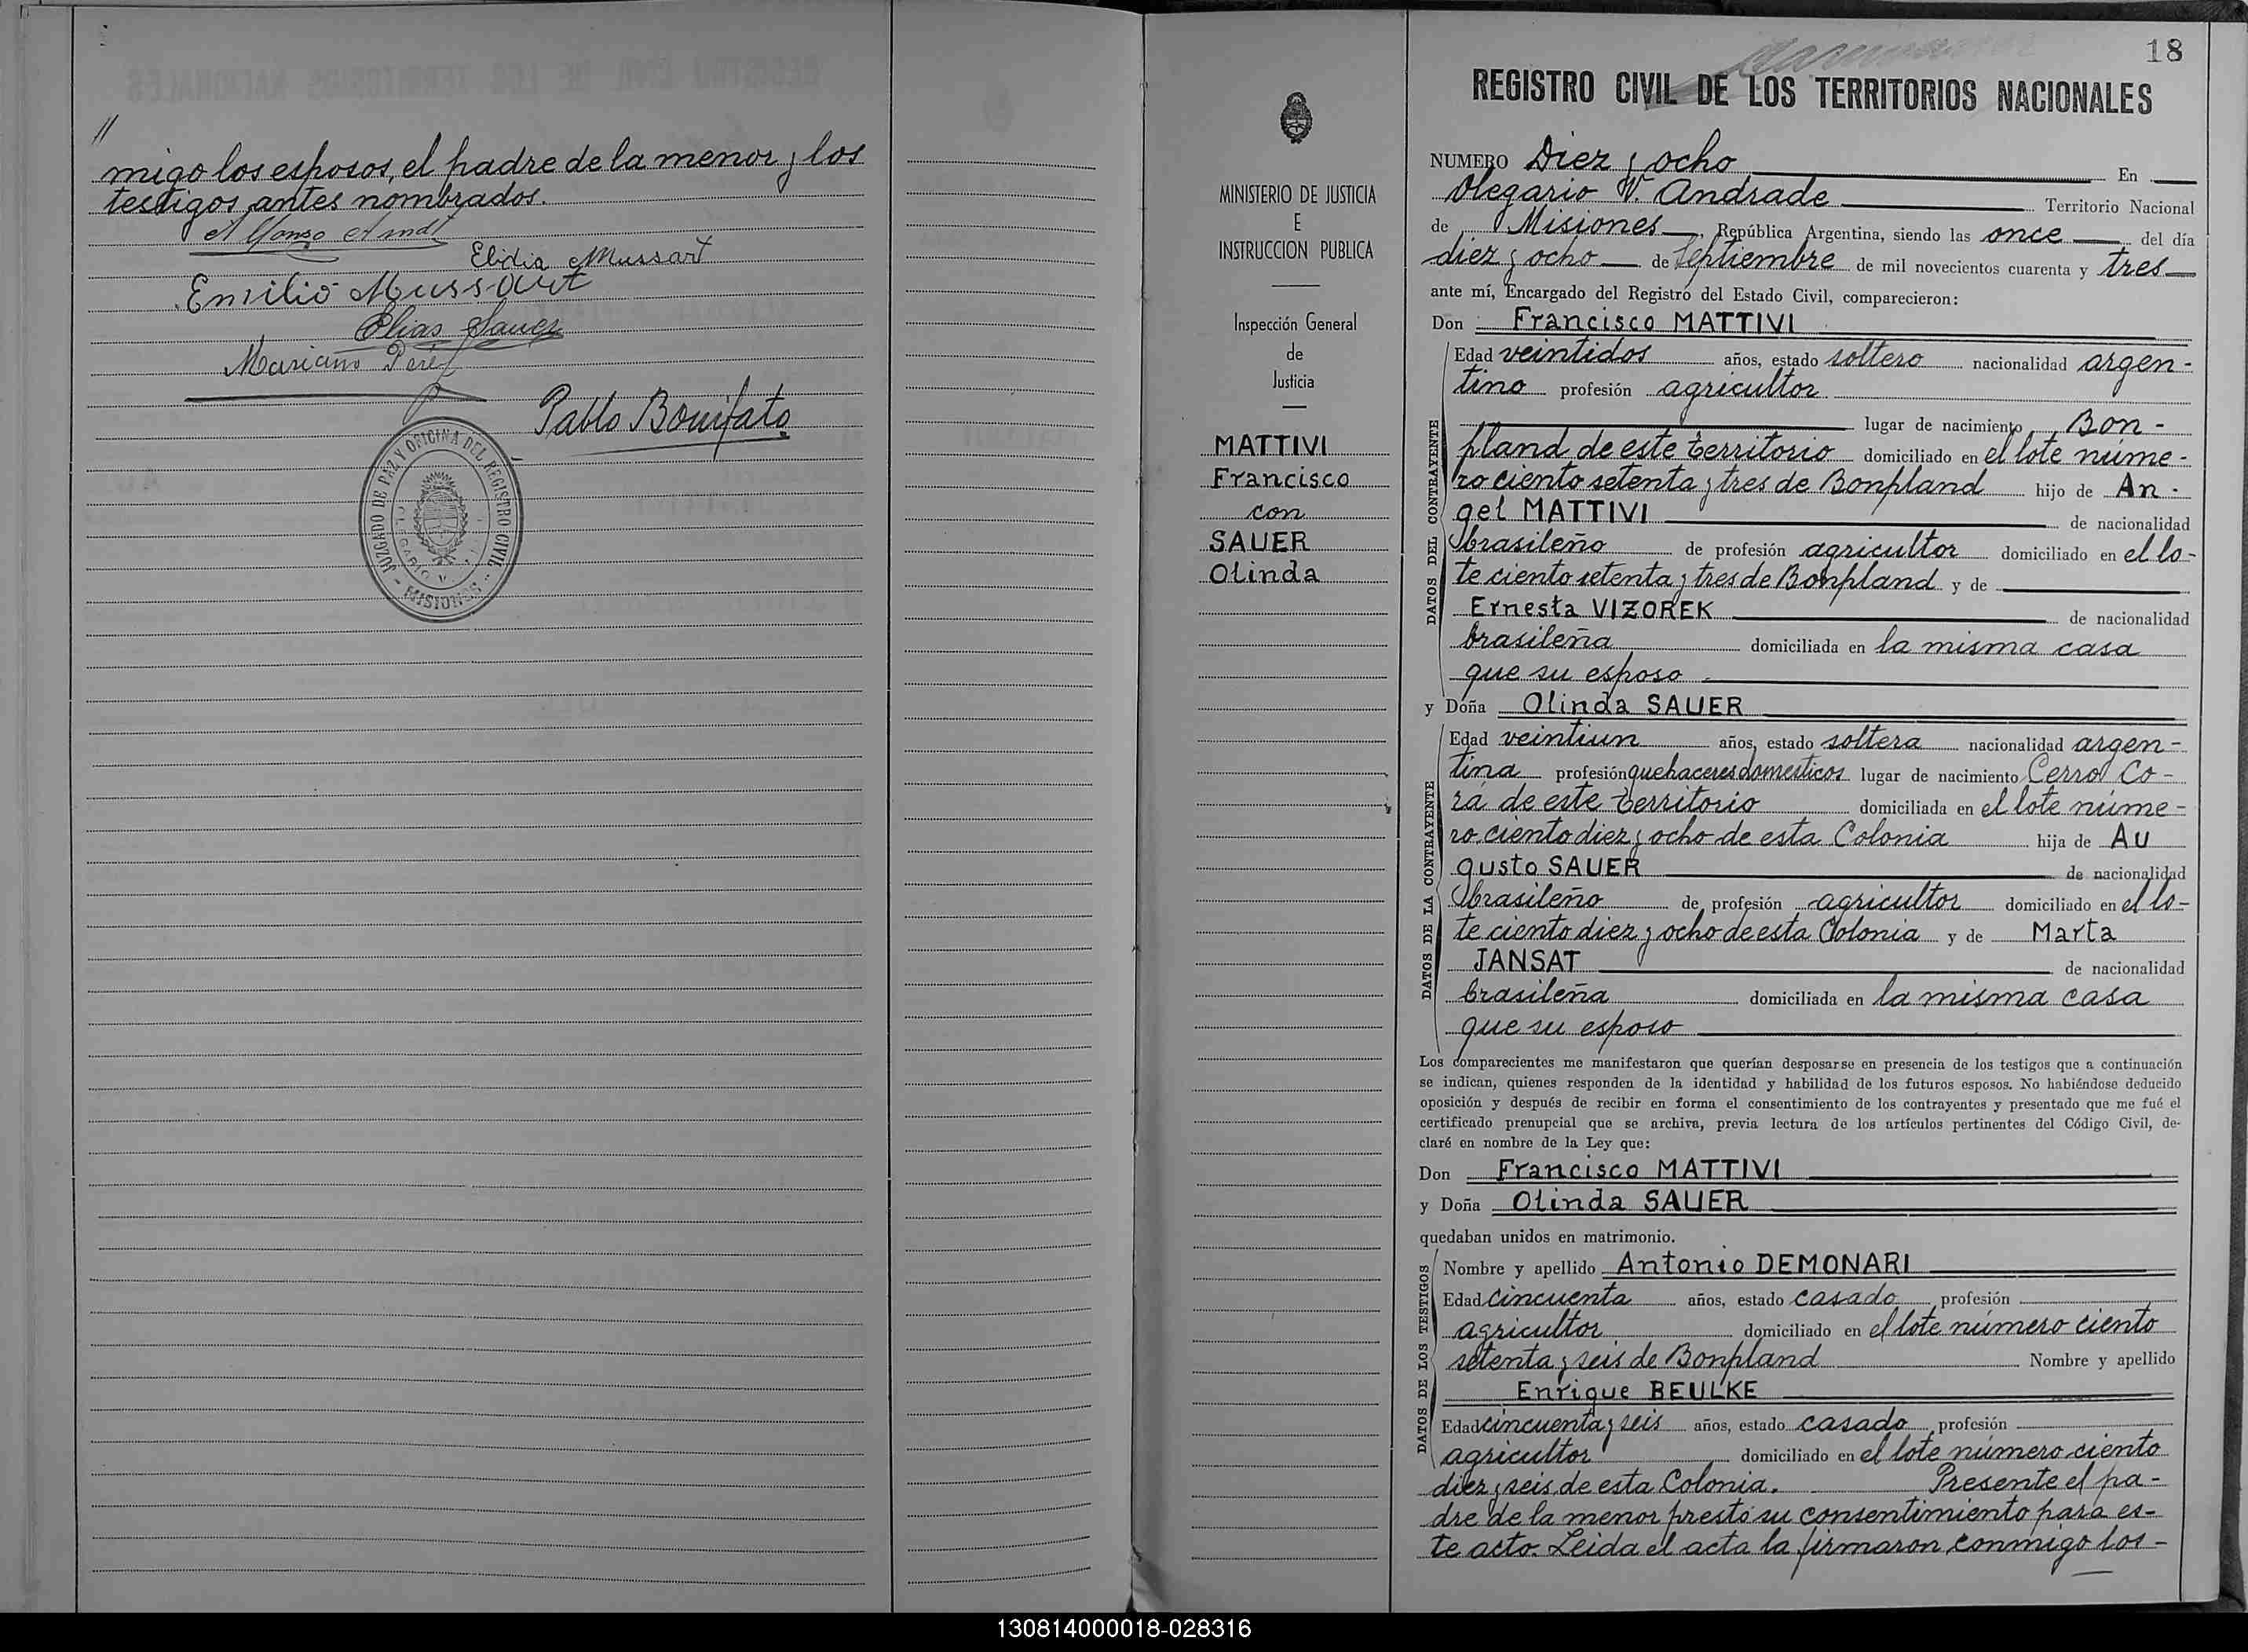 //
migo los esposos, el padre de la menor y los
testigos antes nombrados.
Elidia Mussart
Emilio Mussart
Elias
Mariano
Pablo Bonifato
JUZGADO DE PAZ Y OFICINA DEL REGISTRO CIVIL
- MISIONES -
MINISTERIO DE JUSTICIA
E
INSTRUCCION PUBLICA
Inspección General
de
Justicia
MATTIVI
Francisco
con
SAUER
Olinda
18
REGISTRO CIVIL DE LOS TERRITORIOS NACIONALES
NUMERO Diez y ocho En
Olegario V. Andrade Territorio Nacional
de Misiones, República Argentina, siendo las once del día
diez y ocho de Septiembre de mil novecientos cuarenta y tres
ante mí, Encargado del Registro del Estado Civil, comparecieron:
Don Francisco MATTIVI
DATOS DEL CONTRAYENTE
Edad veintidos años, estado soltero nacionalidad argen-
tino profesión agricultor
lugar de nacimiento Bon-
pland de este territorio domiciliado en el lote núme-
ro ciento setenta y tres de Bonpland hijo de An-
gel MATTIVI de nacionalidad
brasileño de profesión agricultor domiciliado en el lo-
te ciento setenta y tres de Bonpland y de
Ernesta VIZOREK de nacionalidad
brasileña domiciliada en la misma casa
que su esposo
y Doña Olinda SAUER
DATOS DE LA CONTRAYENTE
Edad veintiun años, estado soltera nacionalidad argen-
tina profesión quehaceres domesticos lugar de nacimiento Cerro Co-
rá de este territorio domiciliada en el lote núme-
ro ciento diez y ocho de esta Colonia hija de Au
gusto SAUER de nacionalidad
brasileño de profesión agricultor domiciliado en el lo-
te ciento diez y ocho de esta Colonia y de Marta
JANSAT de nacionalidad
brasileña domiciliada en la misma casa
que su esposo
Los comparecientes me manifestaron que querían desposarse en presencia de los testigos que a continuación
se indican, quienes responden de la identidad y habilidad de los futuros esposos. No habiéndose deducido
oposición y después de recibir en forma el consentimiento de los contrayentes y presentado que me fué el
certificado prenupcial que se archiva, previa lectura de los artículos pertinentes del Código Civil, de-
claré en nombre de la Ley que:
Don Francisco MATTIVI
y Doña Olinda SAUER
quedaban unidos en matrimonio.
DATOS DE LOS TESTIGOS
Nombre y apellido Antonio DEMONARI
Edad cincuenta años, estado casado profesión
agricultor domiciliado en el lote número ciento
setenta y seis de Bonpland Nombre y apellido
Enrique BEULKE
Edad cincuenta y seis años, estado casado profesión
agricultor domiciliado en el lote número ciento
diez y seis de esta Colonia. Presente el pa-
dre de la menor prestó su consentimiento para es-
te acto. Leida el acta la firmaron conmigo los-
130814000018-028316